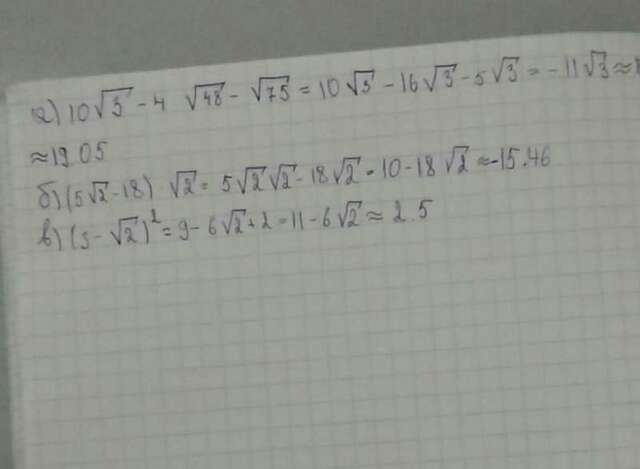 а) 10√3 - 4 √48 - √75 = 10√3 - 16√3 - 5√3 = -11√3 ≈
≈19.05
б) (5√2 - 18) √2 = 5√2√2 - 18√2 = 10 - 18√2 ≈ -15.46
в) (3 - √2)² = 9 - 6√2 + 2 = 11 - 6√2 ≈ 2.5